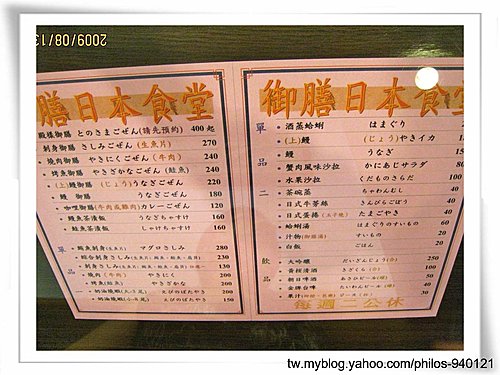 2009/08/13
膳日本食堂
殿様御膳 とのさまごぜん(請先預約) 400起
刺身御膳 さしみごぜん(生魚片) 270
燒肉御膳 やきにくごぜん(牛肉) 240
烤魚御膳 やきざかなごぜん(鮭魚) 240
(上)鰻御膳 (じょう)うなぎごぜん 220
鰻 御膳 うなぎごぜん 180
咖哩御膳(牛肉或雞肉) カレーごぜん
鰻魚茶漬飯 うなぎちゃすけ
鮭魚茶漬飯 しゃけちゃすけ
單品一
鮪魚刺身 マグロさしみ 280
綜合刺身 230
刺身 さしみ
燒肉(牛肉) やきにく
烤魚(鮭魚) やきざかな 200
奶油燒蝦 えびのばたやき 200
奶油燒蝦 えびのばたやき 150
御膳日本食堂
單品二
酒蒸蛤蜊 はまぐり
(上)鰻 (じょう)やきイカ
鰻 うなぎ
蟹肉風味沙拉 かにあじサラダ
水果沙拉 くだものさらだ
茶碗蒸 ちゃわんむし
日式牛蒡絲 きんぴらごぼう
日式蛋捲 たまごやき
蛤蜊湯 はまぐりのすいもの 60
汁物 すいもの 20
白飯 ごはん 20
飲品
大吟釀 だいぎんじょう 250
黃櫻清酒 きざくら 100
朝日啤酒 あさひビール
金牌台啤 たいわんビール
果汁
每週二公休
tw.myblog.yahoo.com/philos-940121